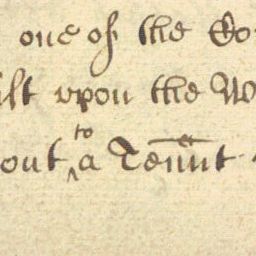 one of the Co
ilt upon the W
out ^to a Tennt